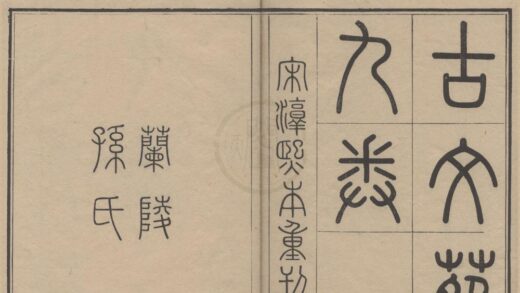 古文苑
九卷
宋淳熙本重刊
蘭陵
孫氏